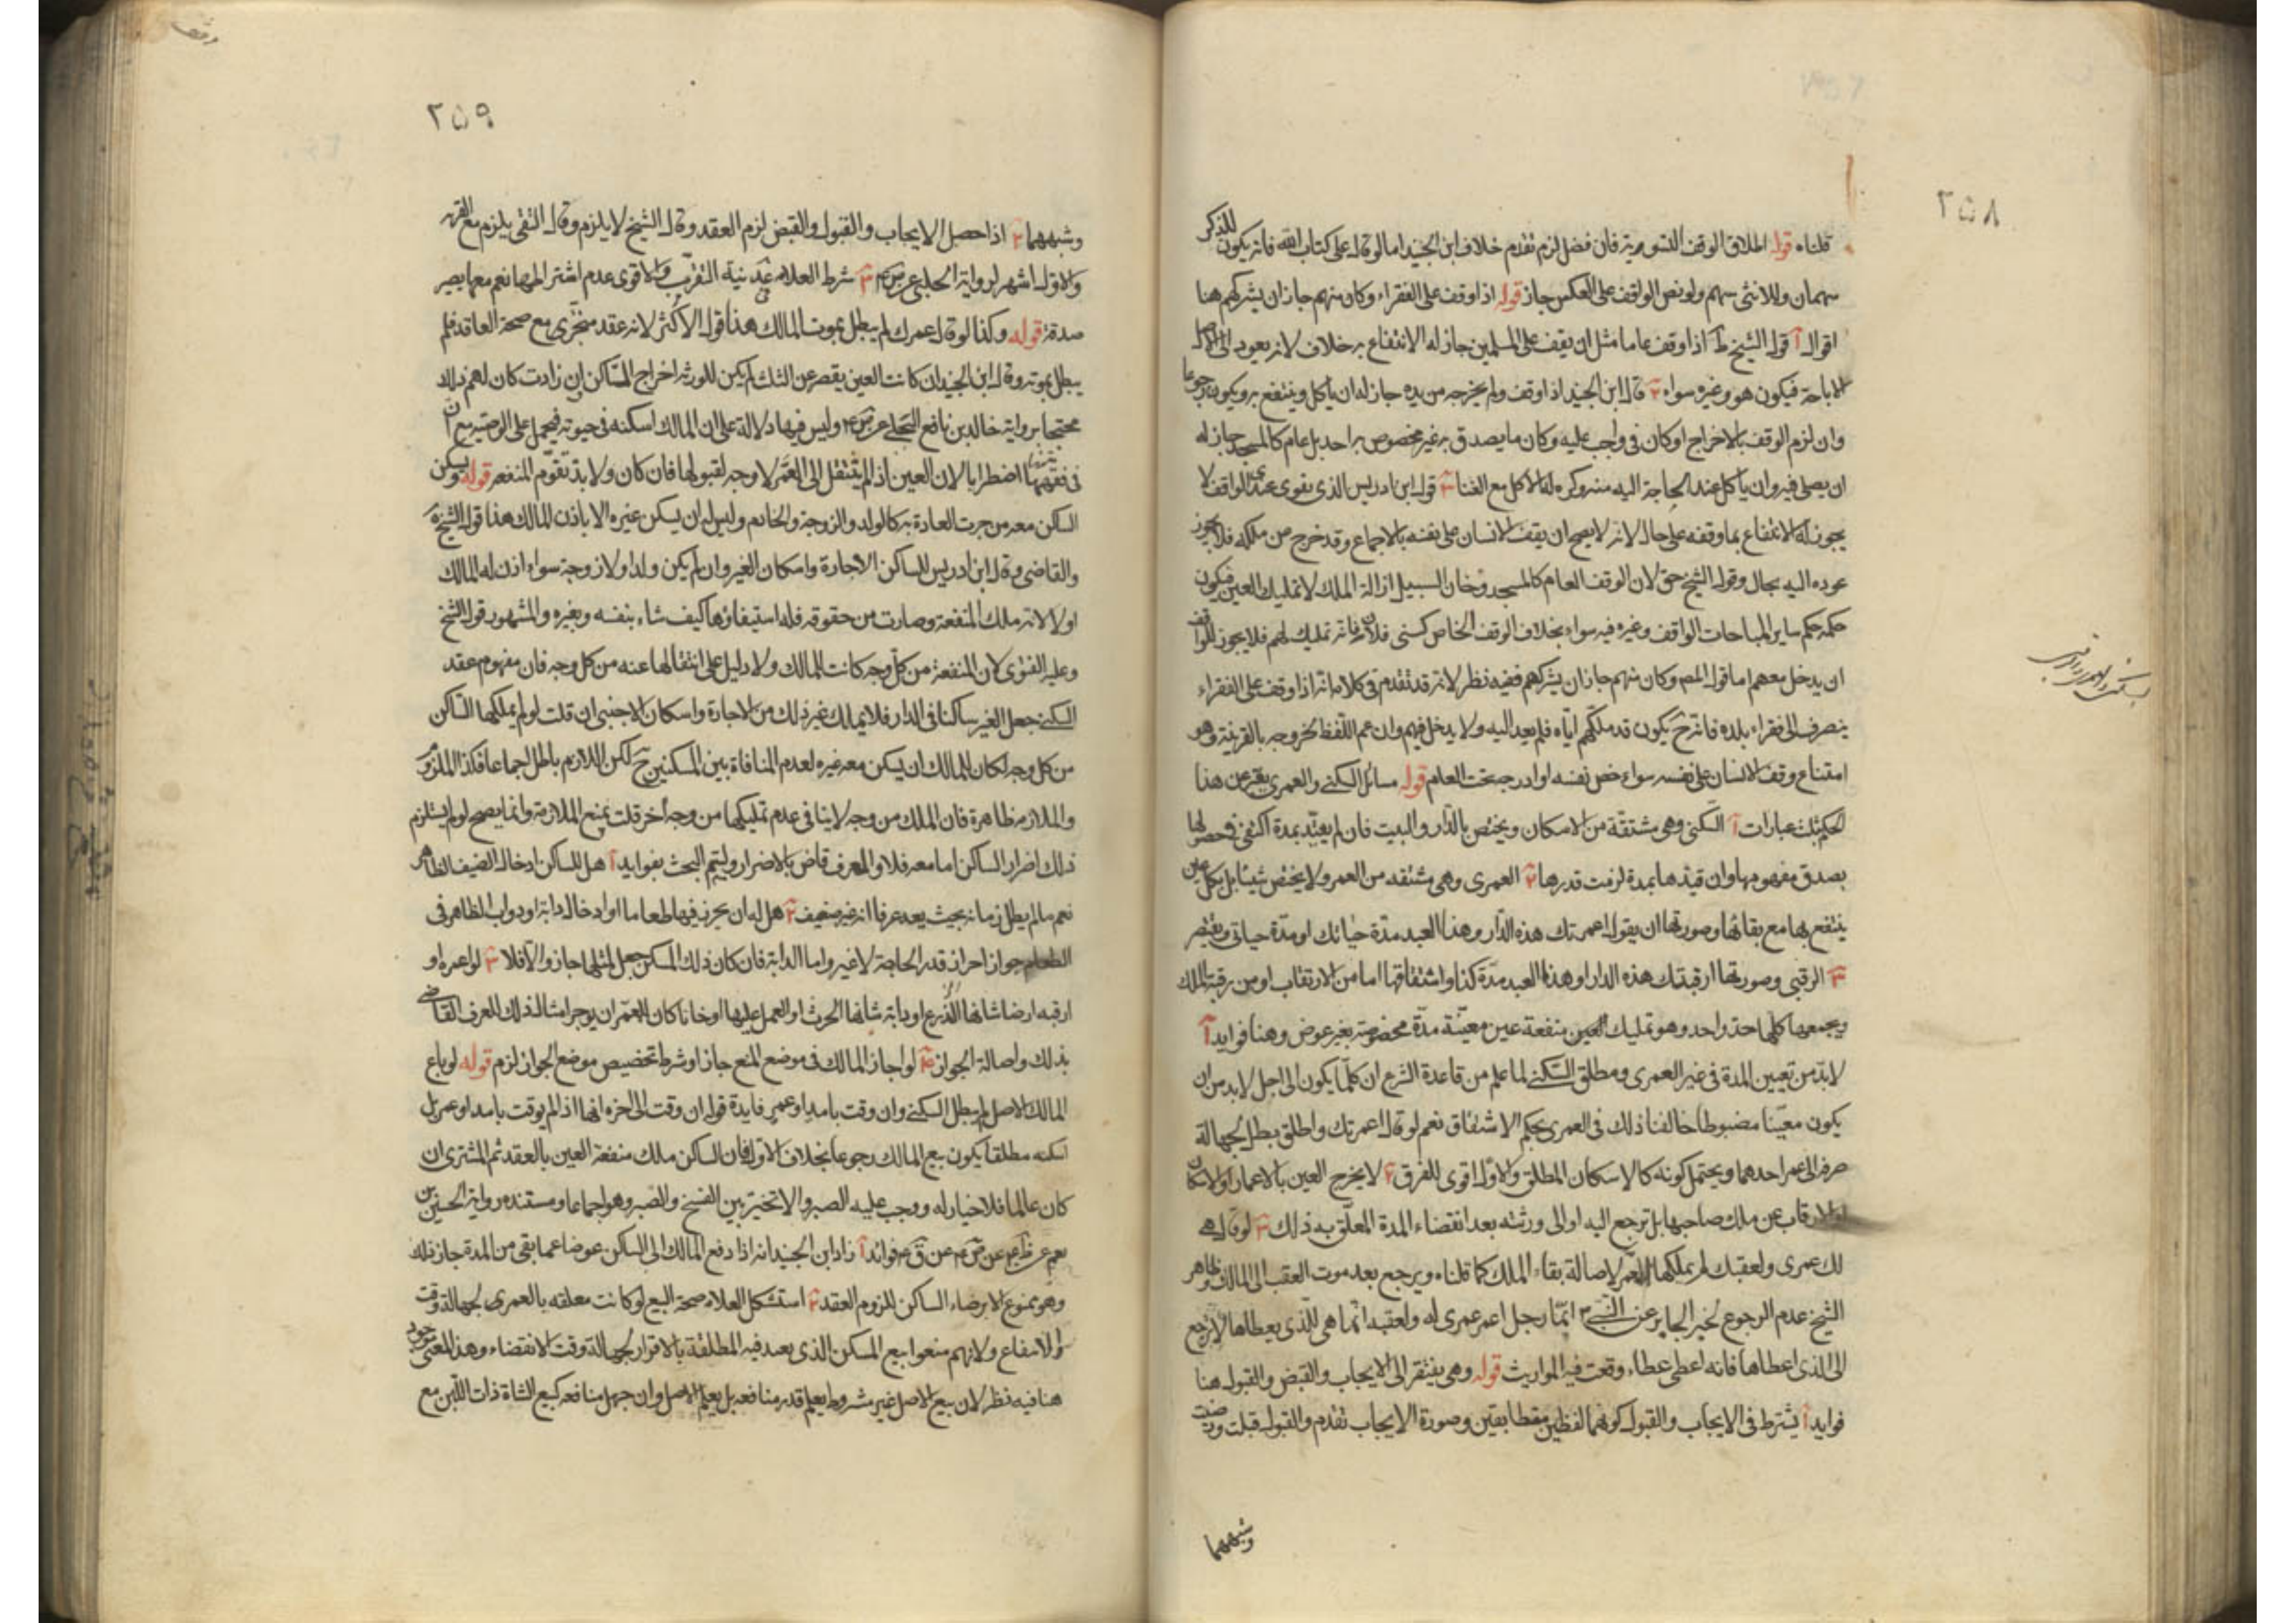 ٢٥٨
قلناه قوله اطلاق الوقف التسوية فان فضل لزم تقدم خلاف ابن الجنيد اما لو قال على كتاب الله فانه يكون للذكر
سهمان وللانثى سهم ولو نص الواقف على العكس جاز قوله اذا وقف على الفقراء وكان منهم جاز ان يشركهم هنا
اقوال آ قول الشيخ ط اذا وقف عاما مثل ان يقف على المسلمين جاز له الانتفاع به خلاف لانه يعود الى اصل
الاباحة فيكون هو وغيره سواء ٢ قال ابن الجنيد اذا وقف ولم يخرجه من يده جاز له ان ياكل وينتفع به ويكون رجوعا
وان لزم الوقف بالاخراج او كان في واجب عليه وكان ما يصدق به غير مخصوص به احد بل عام كالمسجد جاز له
ان يصلي فيه وان ياكل عند الحاجة اليه منه وكره له الاكل مع الغنا ٣ قول ابن ادريس الذي يقوى عندي الواقف لا
يجوز له الانتفاع بما وقفه على حال لانه لا يصح ان يقف الانسان على نفسه بالاجماع وقد خرج من ملكه فلا يجوز
عوده اليه بحال وقول الشيخ حق لان الوقف العام كالمسجد وخان السبيل ازالة الملك لا تمليك العين فيكون
حكمه حكم ساير المباحات الواقف وغيره فيه سواء بخلاف الوقف الخاص كسنى فلان فانه تمليك لهم فلا يجوز للواقف
ان يدخل معهم اما قول المص وكان منهم جاز ان يشركهم ففيه نظر لانه قد تقدم في كلامه انه اذا وقف على الفقراء
ينصرف الى فقراء بلده فانه ح يكون قد ملكهم اياه فلم يعد اليه ولا يدخل فيهم وان عم اللفظ لخروجه بالقرينة وهو
امتناع وقف الانسان على نفسه سواء خص نفسه او ادرجه تحت العام قوله مسائل السكنى والعمرى يعبر عن هذا
الحكم بثلث عبارات آ السكنى وهي مشتقة من الاسكان ويختص بالدار والبيت فان لم يقيد بمدة اكتفى في حصولها
بصدق مفهومها وان قيدها بمدة لزمت قدرها ٢ العمرى وهي مشتقه من العمر ولا يختص شيئا بل بكل عين
ينتفع بها مع بقائها وصورتها ان يقول اعمرتك هذه الدار وهذا العبد مدة حياتك او مدة حياتي ويقتصر
٣ الرقبى وصورتها ارقبتك هذه الدار او هذا العبد مدة كذا واشتقاقها اما من الارتقاب او من رقبة الملك
ويجمعها كلها حد واحد وهو تمليك العين منفعة عين معينة مدة مخصوصة بغير عوض وهنا فوايد آ
لابد من تعيين المدة في غير العمرى ومطلق السكنى لما علم من قاعدة الشرع ان كلما يكون الى اجل لابد من ان
يكون معينا مضبوطا خالفنا ذلك في العمرى بحكم الاشتقاق نعم لو قال اعمرتك واطلق بطل لجهالة
صرفه الى عمر احدهما ويحتمل كونه كالاسكان المطلق والاول اقوى للفرق ٢ لا يخرج العين بالاعمار او الاسكان
او الارقاب عن ملك صاحبها بل ترجع اليه او الى ورثته بعد انقضاء المدة المعلق به ذلك ٣ لو قال هي
لك عمرى ولعقبك لم يملكها المعمر لاصالة بقاء الملك كما قلناه ويرجع بعد موت العقب الى المالك وظاهر
الشيخ عدم الرجوع لخبر الجابر عن النبي ص انما رجل اعمر عمرى له ولعقبه انما هي للذي يعطاها لا يرجع
الى الذي اعطاها فانه اعطى عطاء وقعت فيه المواريث قوله وهي يفتقر الى الايجاب والقبض والقبول هنا
فوايد آ يشترط في الايجاب والقبول كونهما لفظين متطابقين وصورة الايجاب تقدم والقبول قبلت ورضيت
وشبههما
٢٥٩
وشبههما ٢ اذا حصل الايجاب والقبول والقبض لزم العقد وقال الشيخ لا يلزم وقال التقى يلزم مع القربه
والاول اشهر لرواية الحلبي عن ص ع ٣ شرط العلامه في عد نية التقرب والاقوى عدم اشتراطها نعم معها يصير
صدقة قوله وكذا لو قال عمرك لم يبطل بموت المالك هذا قول الاكثر لانه عقد منجزى مع صحة العاقد فلم
يبطل بموته وقال ابن الجنيد ان كانت العين يقصر عن الثلث لم يكن للورثه اخراج الساكن وان زادت كان لهم ذلك
محتجا برواية خالد بن نافع البجلي عن ص ع وليس فيها دلالة على ان المالك اسكنه في حيوته فيحمل على الوصيه مع ان
في فقهها اضطرابا لان العين اذا لم ينتقل الى المعمر لا وجه لقبولها فان كان ولابد تقوم المنفعه قوله ويسكن
الساكن معه من جرت العادة به كالولد والزوجة والخادم وليس له ان يسكن غيره الا باذن المالك هذا قول الشيخ
والقاضي وقال ابن ادريس للساكن الاجارة واسكان الغير وان لم يكن ولدا ولا زوجة سواء اذن له المالك
او لا لانه ملك المنفعة وصارت من حقوقه فله استيفاؤها كيف شاء بنفسه وبغيره والمشهور قول الشيخ
وعليه الفتوى لان المنفعة من كل وجه كانت للمالك ولا دليل على انتقالها عنه من كل وجه فان مفهوم عقد
السكنى جعل الغير ساكنا في الدار فلا يملك غير ذلك من الاجارة واسكان الاجنبي ان قلت لو لم يملكها الساكن
من كل وجه لكان للمالك ان يسكن معه غيره لعدم المنافاة بين المسكنين ح لكن اللازم باطل اجماعا فكذا الملزوم
والملازمه ظاهرة فان الملك من وجه لا ينافي عدم تمليكها من وجه آخر قلت يمنع الملازمة وانما يصح لو لم يستلزم
ذلك اضرار الساكن اما معه فلا والمعرف قاض بالاضرار وليتم البحث بفوايد آ هل للساكن ادخال الضيف الظاهر
نعم ما لم يطل زمانه بحيث يعد عرفا انه غير ضيف ٢ هل له ان يحرز فيها طعاما او ادخال دابة او دواب الظاهر في
الطعام جواز احراز قدر الحاجة لا غير واما الدابة فان كان ذلك المسكن جعل لمثلها جاز والا فلا ٣ لو اعمره او
ارقبه ارضا شانها الزرع او دابة شانها الحرث او العمل عليها او خانا كان للمعمر ان يوجر امثال ذلك العرف القاضي
بذلك واصالة الجواز ٤ لو اجاز المالك في موضع المنع جاز او شرط تخصيص موضع الجواز لزم قوله لو باع
المالك الاصل لم يبطل السكنى وان وقت بامد او عمر فايدة قوله ان وقت الى اخره انها اذا لم يوقت بامد او عمر بل
اسكنه مطلقا يكون بيع المالك رجوعا بخلاف الاول فان الساكن ملك منفعة العين بالعقد ثم المشتري ان
كان عالما فلا خيار له ووجب عليه الصبر والا تخير بين الفسخ والصبر وهو اجماعا ومستنده رواية الحسين بن
نعيم عن ظم ع عن ص ع عن ق ع فوائد آ زاد ابن الجنيد انه اذا دفع المالك الى الساكن عوضا عما بقى من المدة جاز ذلك
وهو ممنوع الا برضاء الساكن للزوم العقد ٢ استشكل العلامه صحة البيع لو كانت معلقه بالعمرى لجهالة وقت
الانتفاع ولانهم منعوا بيع المسكن الذي يعتد فيه المطلقة بالاقرار لجهالة وقت الانقضاء وهذا المعنى موجود
هنا فيه نظر لان بيع الاصل غير مشروط بعلم قدر منافعه بل يعلم الاصل وان جهل منافعه كبيع الشاة ذات اللبن مع